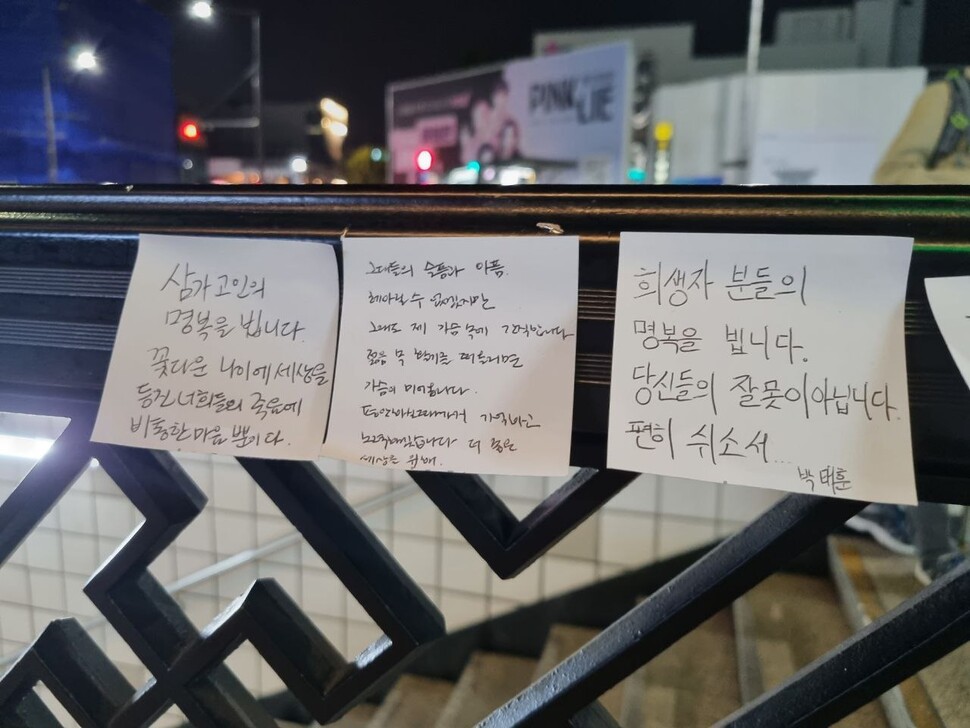 PINK LIE
삼가 고인의
명복을 빕니다.
꽃다운 나이에 세상을
등진 너희들의 죽음에
비통한 마음 뿐이다.
그대들의 슬픔과 아픔.
헤아릴 수 없겠지만
그래도 제 가슴 속에
떠올리면
가슴이 미어집니다.
기억하고
더 좋은
세상을 위해.
희생자 분들의
명복을 빕니다.
당신들의 잘못이아닙니다.
편히 쉬소서...
박태훈